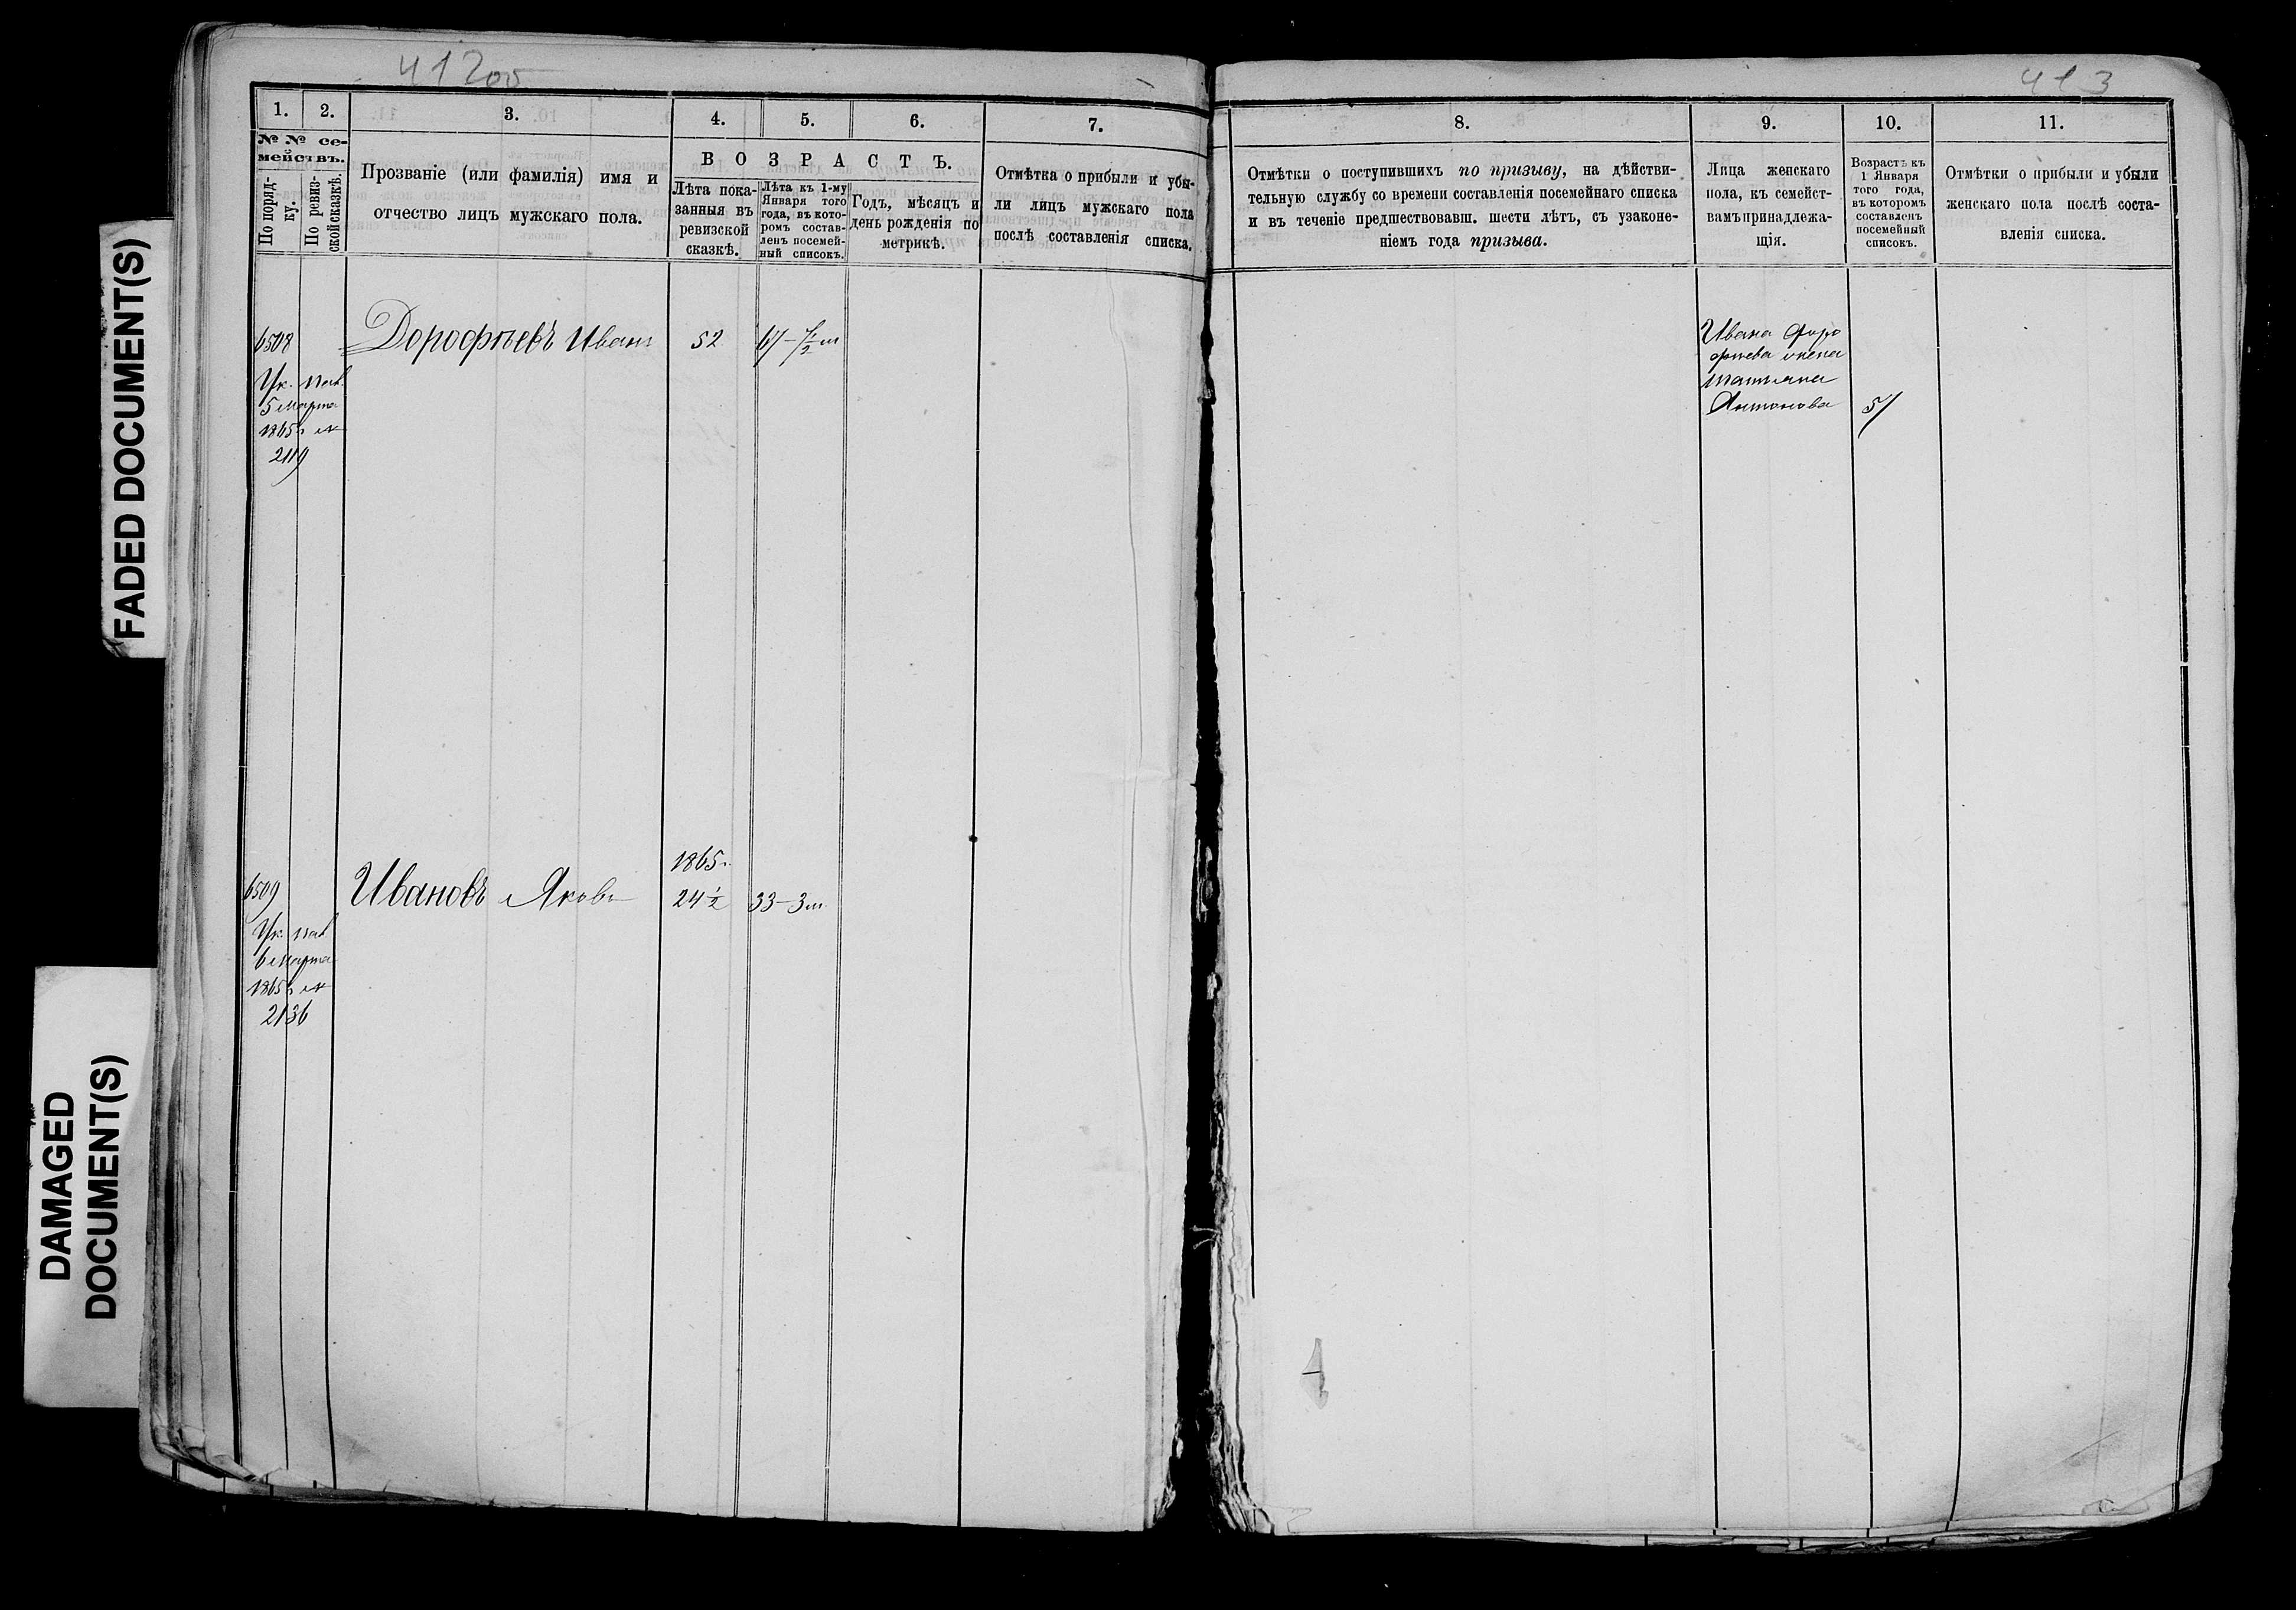 FADED DOCUMENT(S)
DAMAGED
DOCUMENT(S)
412об
1.
2.
3.
4.
5.
6.
7.
№ № се-
мействъ.
По поряд-
ку.
По ревиз-
ской сказкѣ.
Прозваніе (или фамилія) имя и
отчество лицъ мужскаго пола.
ВОЗРАСТЪ.
Лѣта пока-
занныя въ
ревизской
сказкѣ.
Лѣта къ 1-му
Января того
года, въ кото-
ромъ состав-
ленъ посемей-
ный списокъ.
Годъ, мѣсяцъ и
день рожденія по
метрикѣ.
Отмѣтка о прибыли и убы-
ли лицъ мужскаго пола
послѣ составленія списка.
6508
Дорофѣевъ Иванъ
52
Ук. Пал.
5 Марта
1865 г №
2119
1865 г.
6509
Ивановъ Яковъ
24 ½
33-3 м.
Ук. Пал.
6 Марта
1865 г №
2136
413
8.
9.
10.
11.
Отмѣтки о поступившихъ по призыву, на дѣйстви-
тельную службу со времени составленія посемейнаго списка
и въ теченіе предшествовавш. шести лѣтъ, съ узаконе-
ніемъ года призыва.
Лица женскаго
пола, къ семейст-
вамъ принадлежа-
щія.
Возрастъ къ
1 Января
того года,
въ которомъ
составленъ
посемейный
списокъ.
Отмѣтки о прибыли и убыли
женскаго пола послѣ соста-
вленія списка.
Ивана Доро
фѣева жена
Татіана
Антонова